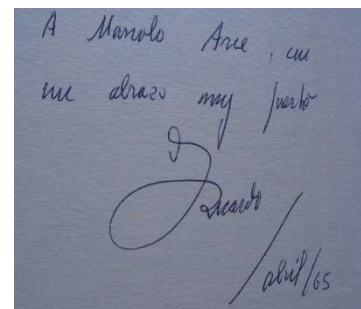 A Manolo Arce, con
un abrazo muy fuerte
Ricardo
abril/65